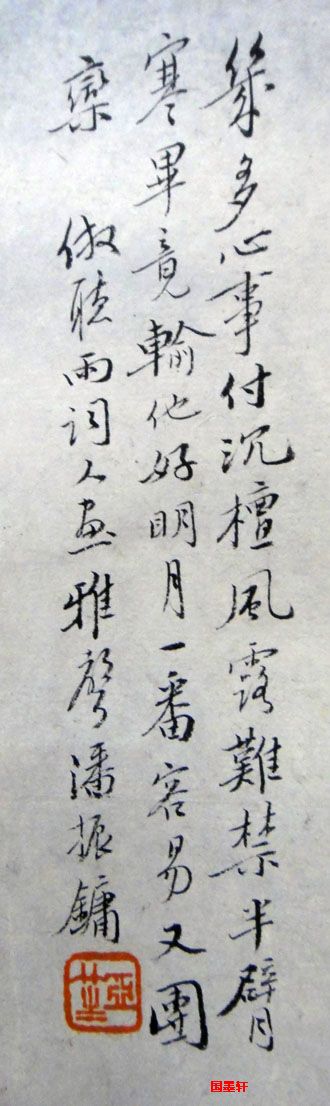 幾多心事付沉檀風露難禁半臂
寒畢竟輸他好明月一番容易又團
欒 倣聽雨詞人畫雅聲潘振鏞
亞笙
国墨轩